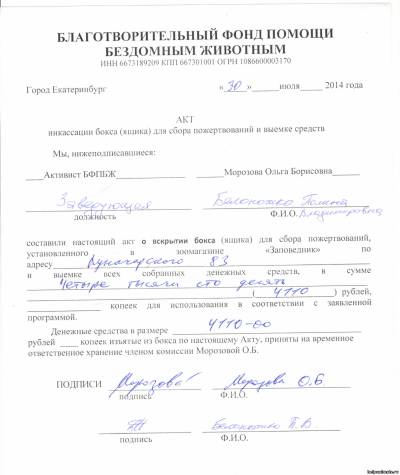 БЛАГОТВОРИТЕЛЬНЫЙ ФОНД ПОМОЩИ
БЕЗДОМНЫМ ЖИВОТНЫМ
ИНН 6673189209 КПП 667301001 ОГРН 1086600003170
Город Екатеринбург «30» июля 2014 года
АКТ
инкассации бокса (ящика) для сбора пожертвований и выемке средств
Мы, нижеподписавшиеся:
Активист БФПБЖ Морозова Ольга Борисовна
Заведующая Белоножко Полина
должность Ф.И.О. Владимировна
составили настоящий акт о вскрытии бокса (ящика) для сбора пожертвований,
установленного в зоомагазине «Заповедник» по
адресу Луначарского 83
и выемке всех собранных денежных средств, в сумме
Четыре тысячи сто десять
( 4110 ) рублей,
копеек для использования в соответствии с заявленной
программой.
Денежные средства в размере 4110-00
рублей ____ копеек изъятые из бокса по настоящему Акту, приняты на временное
ответственное хранение членом комиссии Морозовой О.Б.
ПОДПИСИ Морозова Морозова О.Б
подпись Ф.И.О.
Белоножко П.В
подпись Ф.И.О.